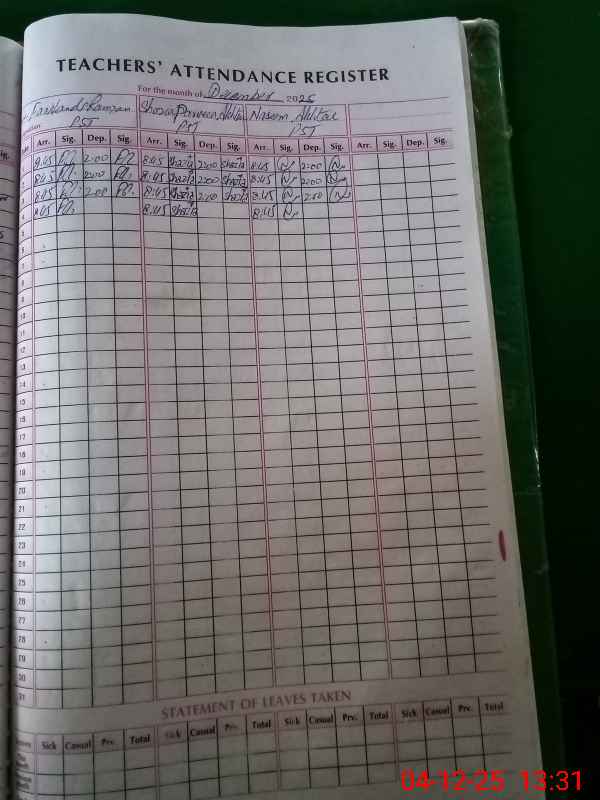 TEACHERS' ATTENDANCE REGISTER
For the month of December 2025
Nasem Akhtar
PST PST PST
Arr. Sig. Dep. Sig. Arr. Sig. Dep. Sig. Arr. Sig. Dep. Sig. Arr. Sig. Dep. Sig.
8:45 2:00 8:45 Shazia 2:00 Shazia 8:45 2:00
8:45 2:00 8:45 Shazia 2:00 Shazia 8:45 2:00
8:45 2:00 8:45 Shazia 2:00 Shazia 8:45 2:00
4 8:45 8:45 Shazia 8:45
5
6
7
8
9
10
11
12
13
14
15
16
17
18
19
20
21
22
23
24
25
26
27
28
29
30
31
STATEMENT OF LEAVES TAKEN
Sick Casual Prv. Total Sick Casual Prv. Total Sick Casual Prv. Total Sick Casual Prv. Total
04-12-25 13:31